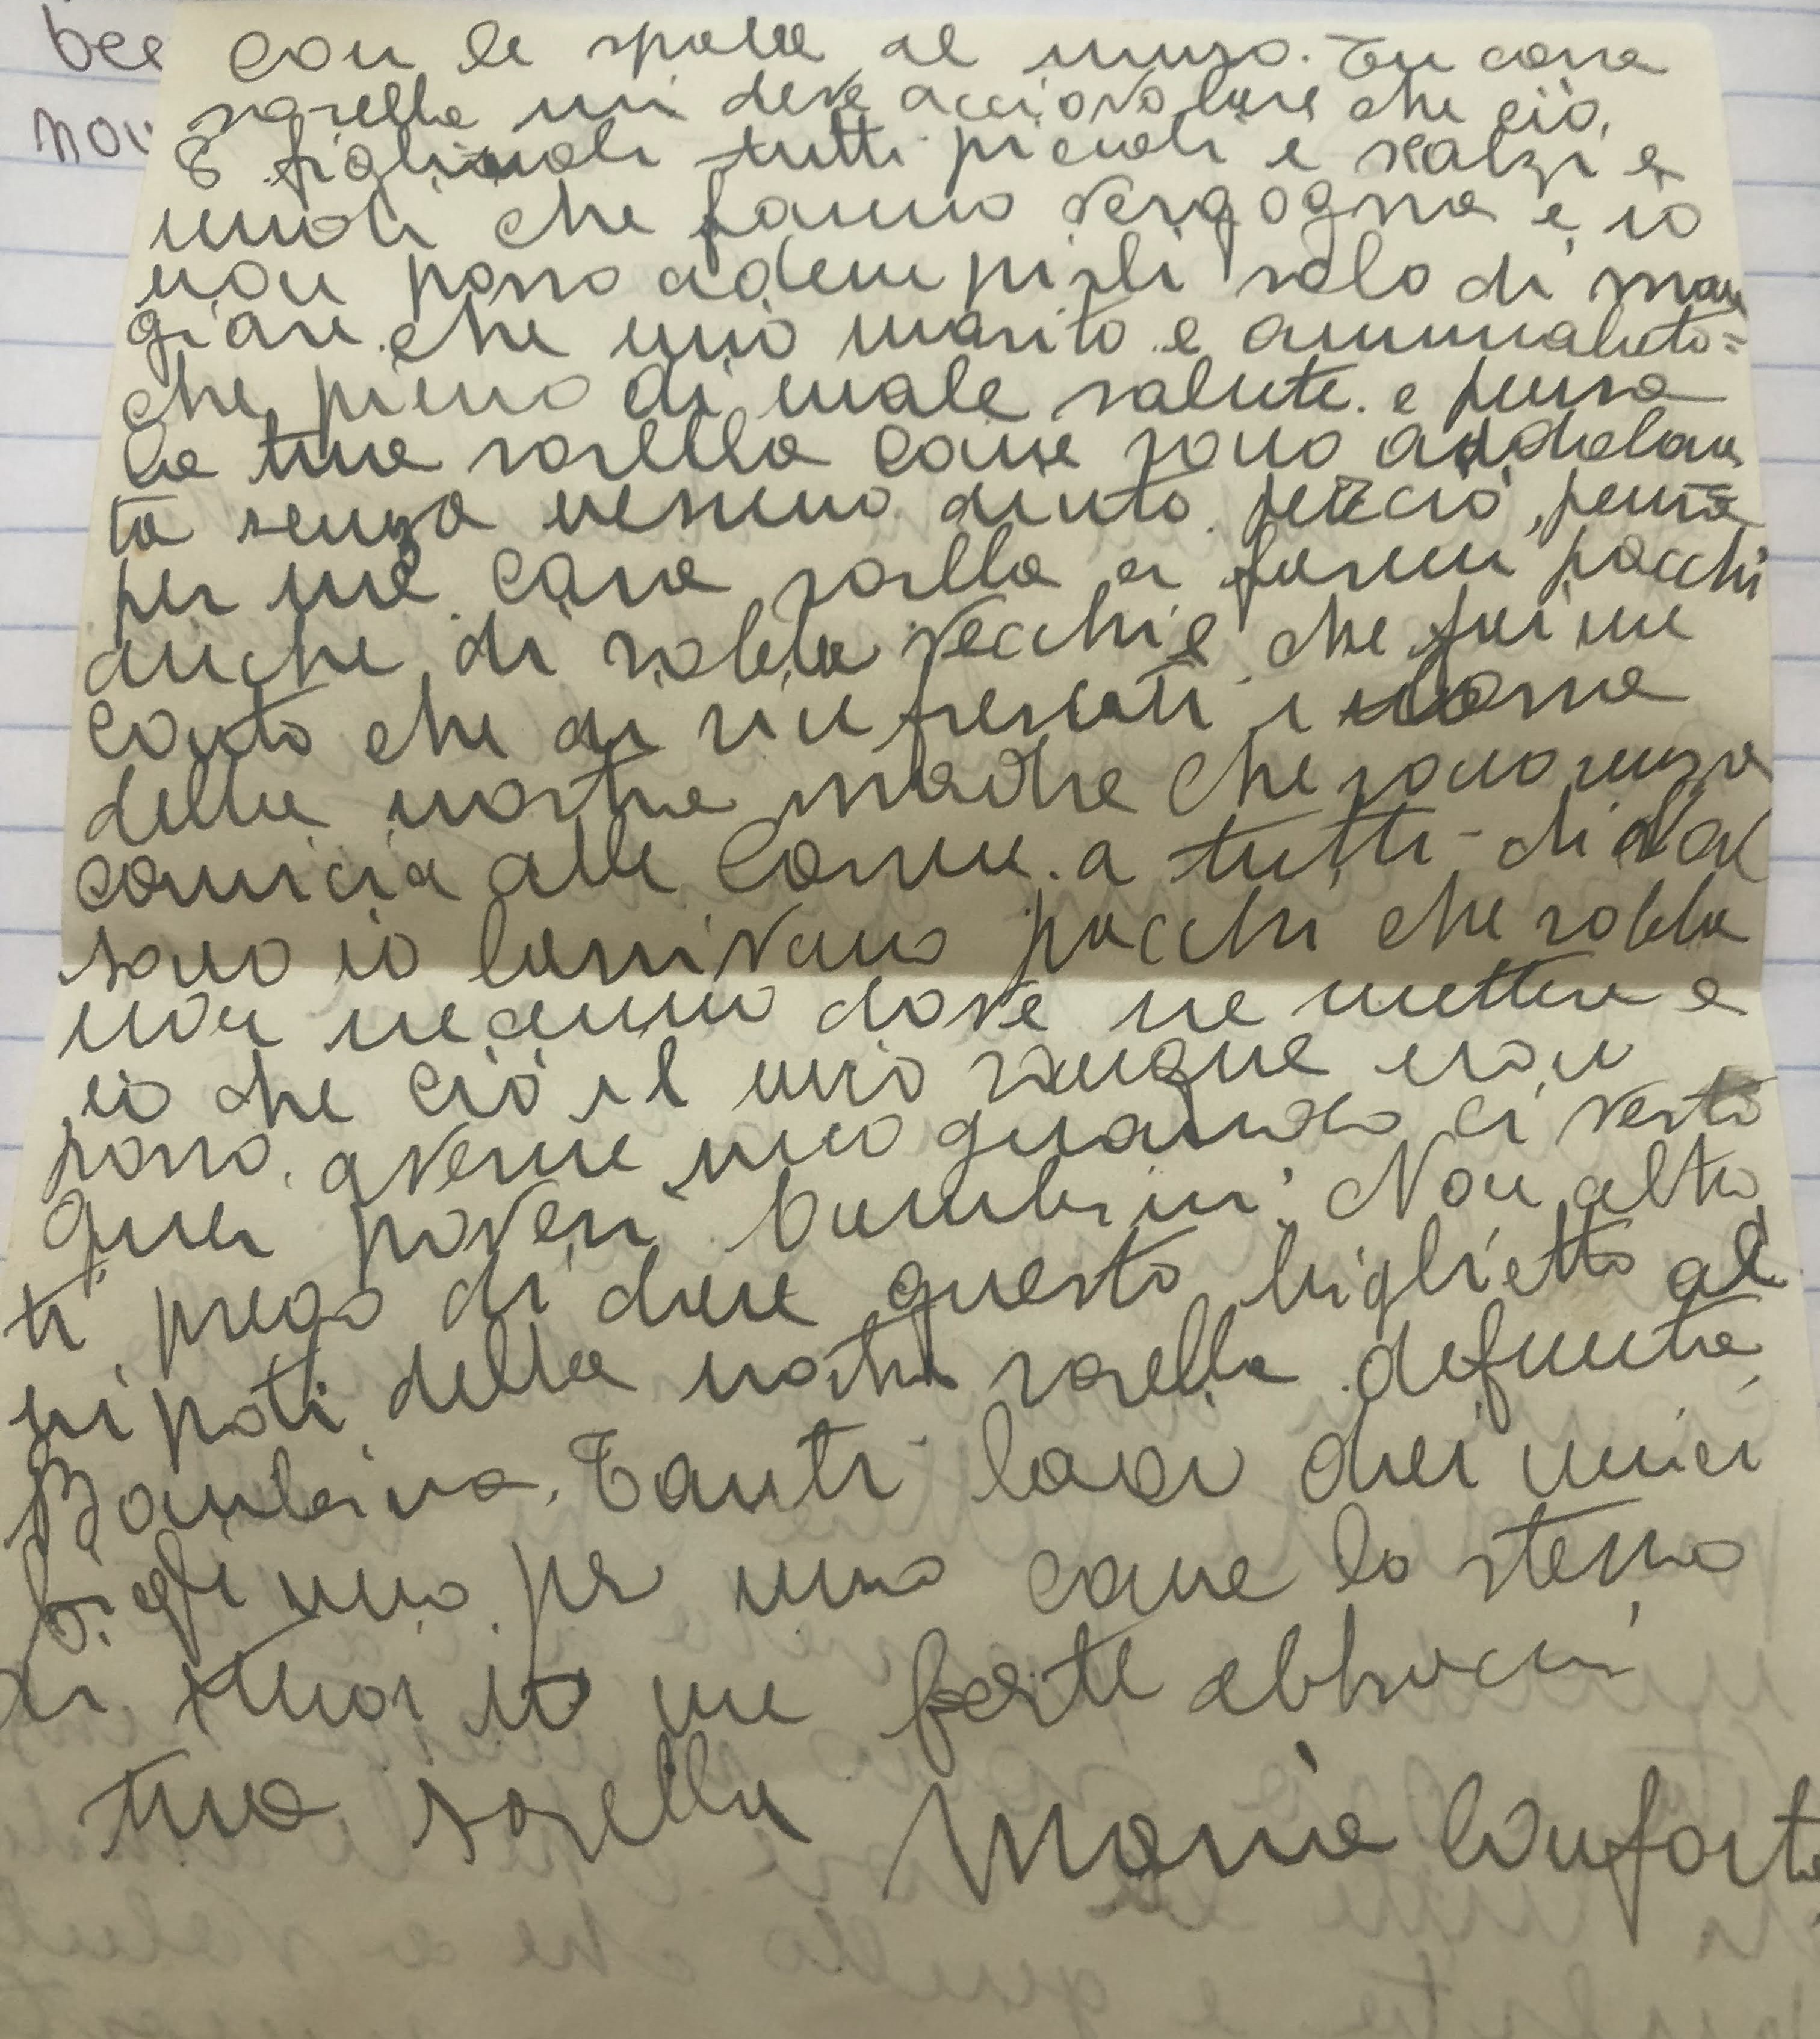 bee
nov
con le spalle al muro. Tu cara
sorella mi deve acciovolare che ciò,
8 figliuoli tutti piccoli e scalzi e
nuoli che fanno vergogna e io
non posso adempirli solo di man
giare che mio marito e ammalato=
che pieno di male salute. e pensa
la tua sorella come sono addolan
ta senza nesuno aiuto. perciò, pensa
per me cara sorella a farmi pacchi
anche di robba vecchie che fai me
conto che ai rinfrescati i
della nostra madre che sono senza
camicia alle Carne. a tutti di
sono io larrivano pacchi che robba
non neanno dove ne mettere e
io che ciò il mio sangue non
posso averne mio quando ci vesto
quei poveri bambini. Non altro
ti prego di dare questo biglietto al
nipoti della nostra sorella defunta
Bambina. Tanti baci dei miei
figli uno per uno come lo stesso
di tuoi io me forte abbracci
tua sorella Maria Conforti